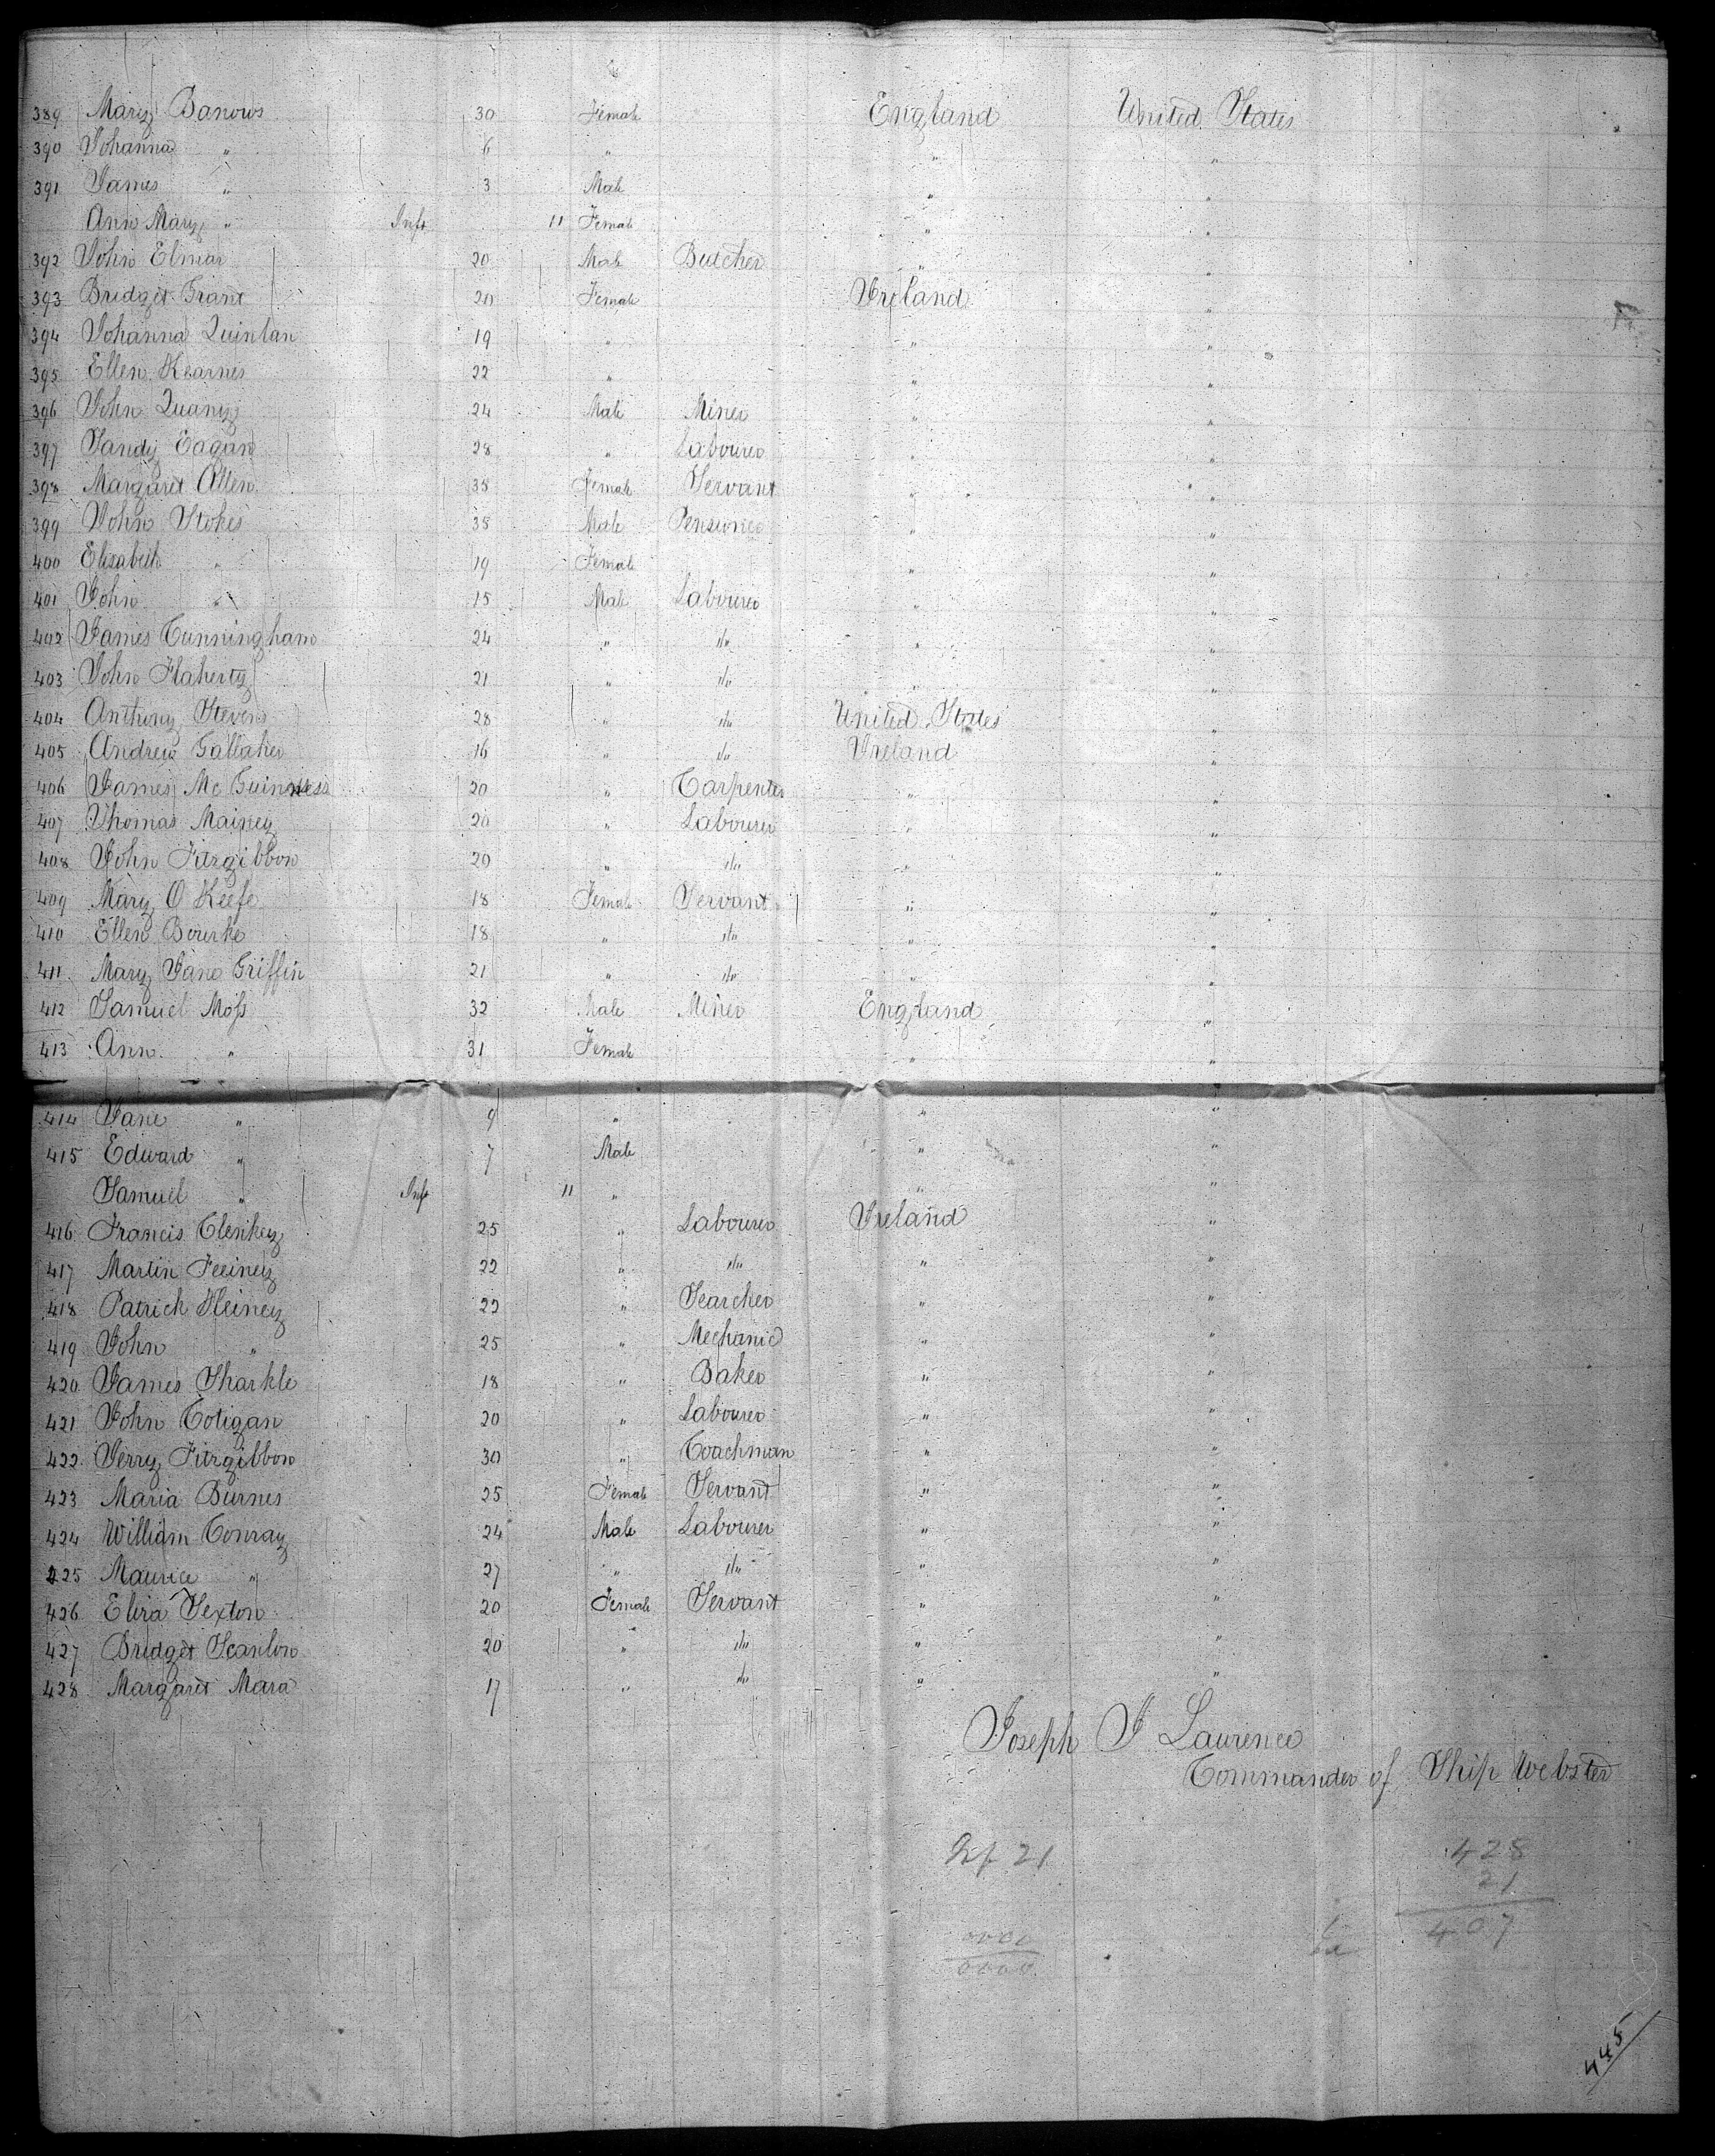 389 Mary Banows 30 Female England United States
390 Johanna " 6 " " "
391 James " 3 Male " "
Ann Mary " Inft 11 Female " "
392 John Elmar 20 Male Butcher " "
393 Bridget Grant 20 Female Ireland "
394 Johanna Quinlan 19 " " "
395 Ellen Kearnes 22 " " "
396 John Quany 24 Male Miner " "
397 Sandy Eagan 28 " Labourer " "
398 Margaret Allen 38 Female Servant " "
399 John Stokes 35 Male Pensioner " "
400 Elizabeth " 19 Female " "
401 John " 15 Male Labourer " "
402 James Cunningham 24 " do " "
403 John Flaherty 21 " do " "
404 Anthony Stevens 28 " do United States "
405 Andrew Gallaher 16 " do Ireland "
406 James Mc Guinness 20 " Carpenter " "
407 Thomas Mainey 20 " Labourer " "
408 John Fitzgibbon 20 " do " "
409 Mary O Keefe 18 Female Servant " "
410 Ellen Bourke 18 " do " "
411 Mary Jane Griffin 21 " do " "
412 Samuel Moss 32 Male Miner England "
413 Ann " 31 Female " "
414 Jane " 9 " " "
415 Edward " 7 Male " "
Samuel " Inft 11 " " "
416 Francis Clenkey 25 " Labourer Ireland "
417 Martin Feeiney 22 " do " "
418 Patrick Heiney 22 " Searcher " "
419 John " 25 " Mechanic " "
420 James Sharkle 18 " Baker " "
421 John Cotigan 20 " Labourer " "
422 Jerry Fitzgibbon 30 " Coachman " "
423 Maria Burnes 25 Female Servant " "
424 William Conray 24 Male Labourer " "
425 Maurice " 27 " do " "
426 Eliza Sexton 20 Female Servant " "
427 Bridget Scanlon 20 " do " "
428 Margaret Mara 17 " do " "
Joseph J Laurence
Commander of Ship Webster
428
Inf 21 21
407
445